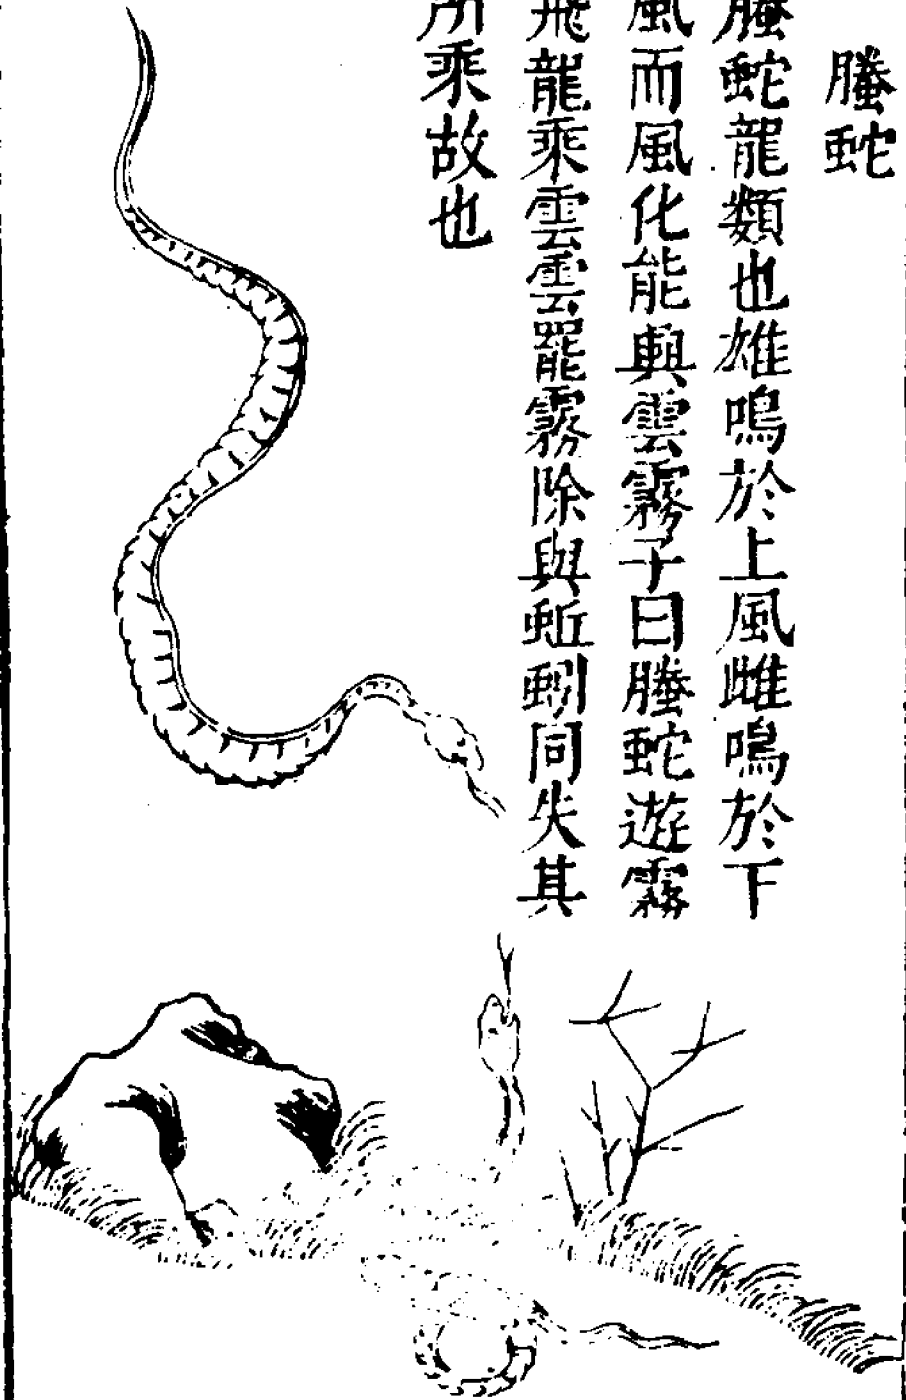 螣蛇
螣蛇龍類也雄鳴於上風雌鳴於下
風而風化能興雲霧子曰螣蛇遊霧
飛龍乘雲雲罷霧除與蚯蚓同失其
所乘故也